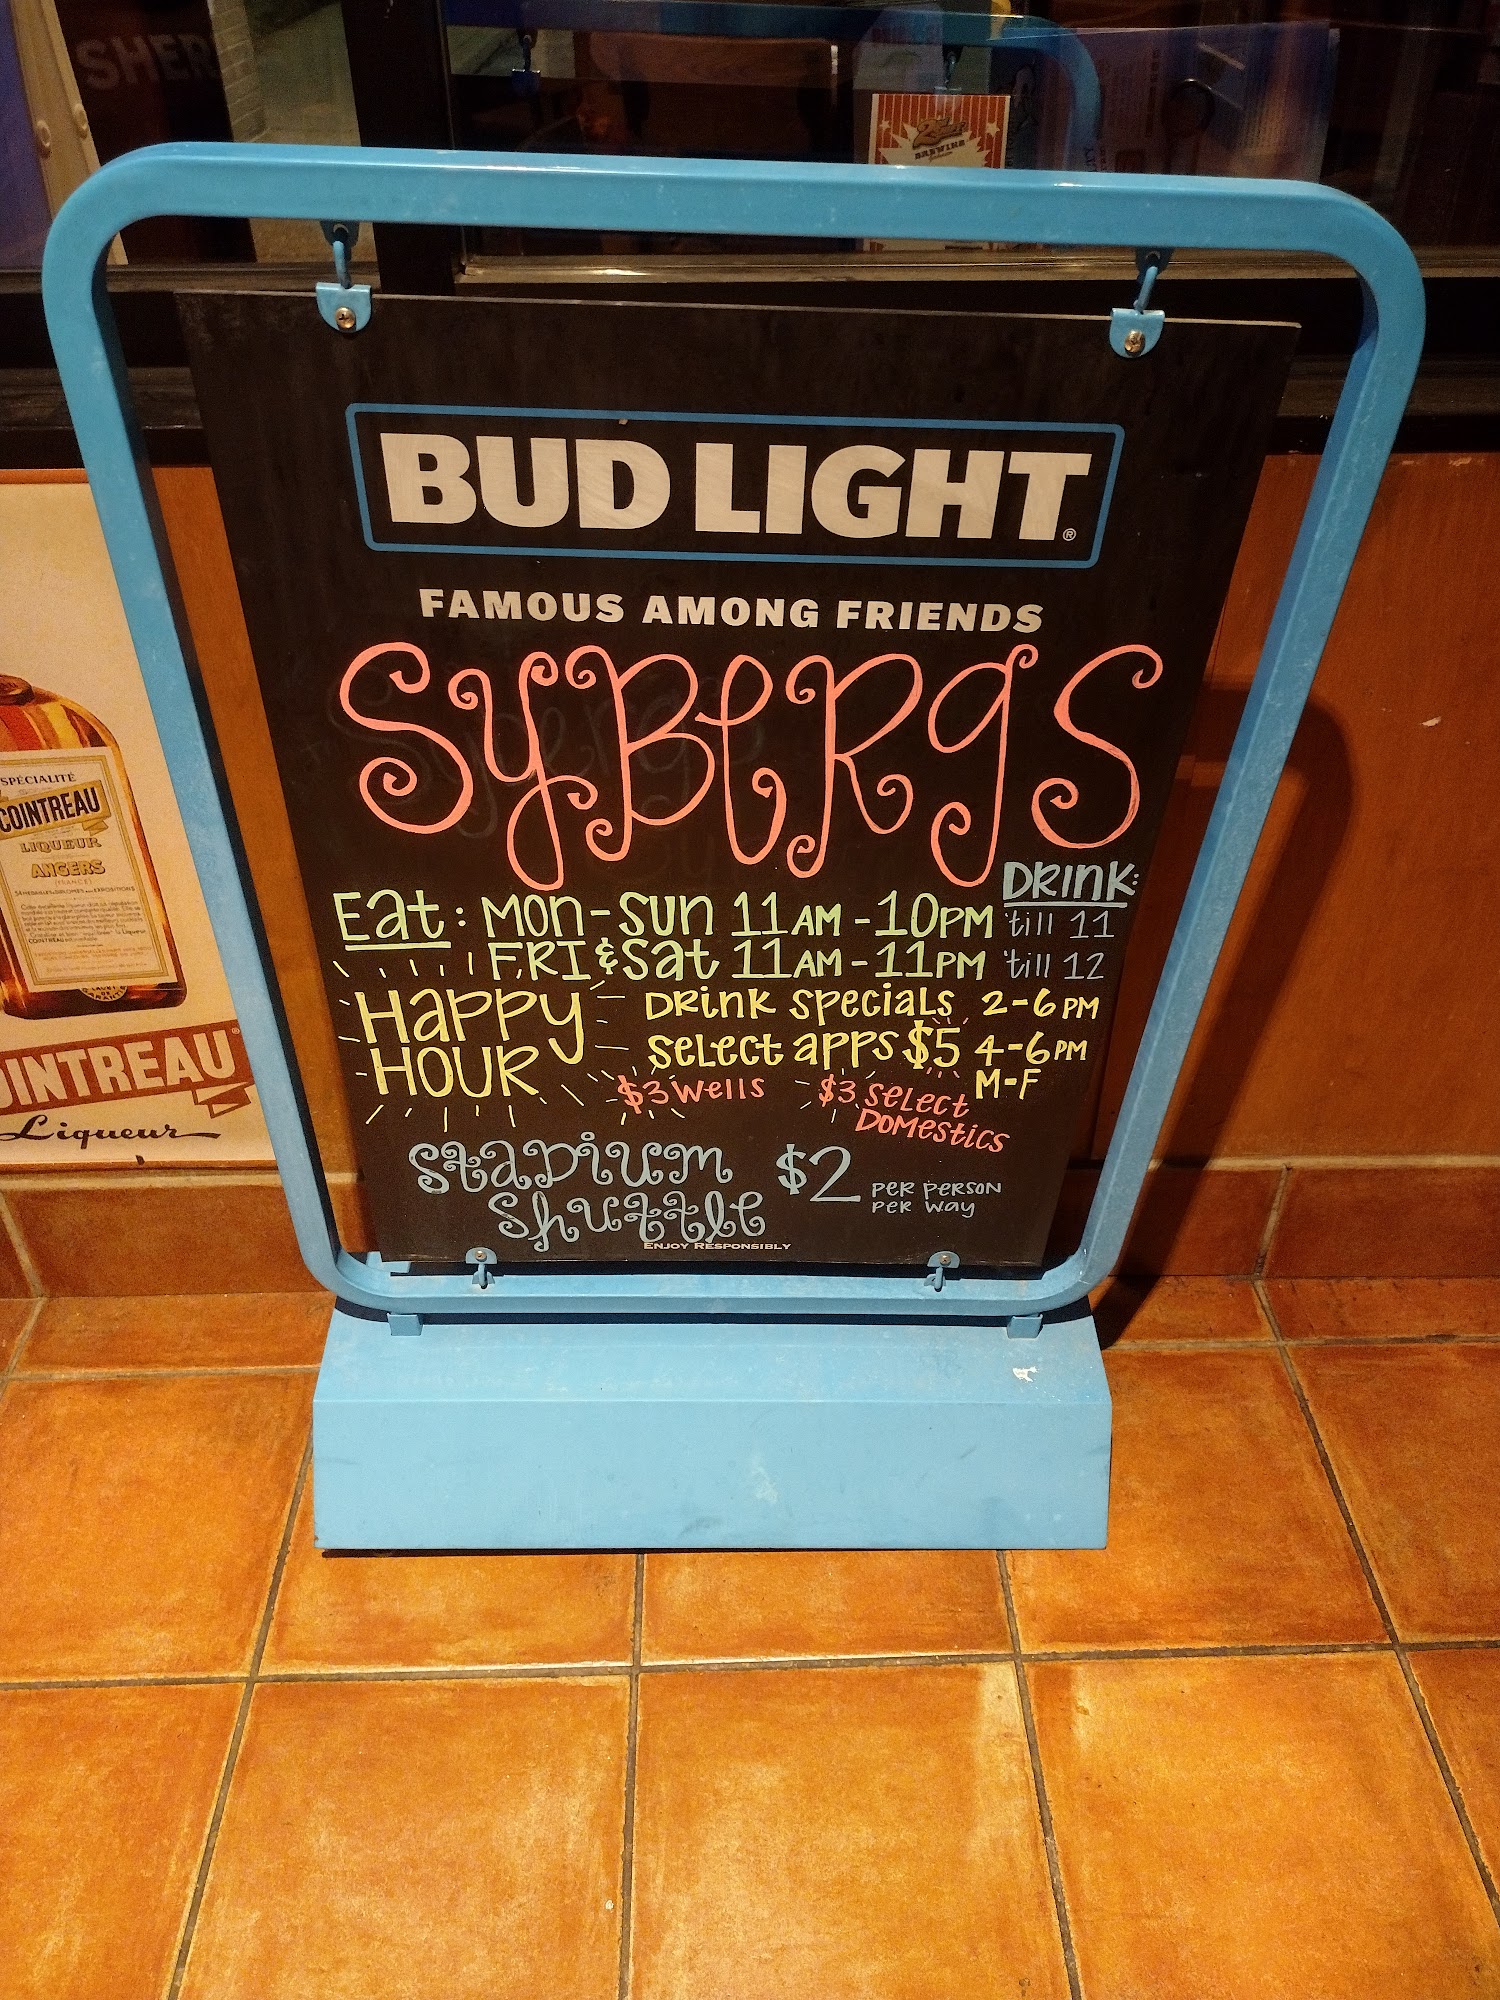 SHER
BREWING
BUD LIGHT®
FAMOUS AMONG FRIENDS
SYBERGS
DRINK:
Eat: MON-SUN 11AM-10PM 'till 11
FRI & Sat 11AM-11PM 'till 12
Happy HOUR
DRINK SPECIALS 2-6PM
SELECT APPS $5 4-6PM
M-F
$3 WELLS
$3 SELECT DOMESTICS
STADIUM SHUTTLE
$2 PER PERSON
PER WAY
ENJOY RESPONSIBLY
SPÉCIALITÉ
COINTREAU
LIQUEUR
ANGERS
(FRANCE)
OINTREAU
Liqueur